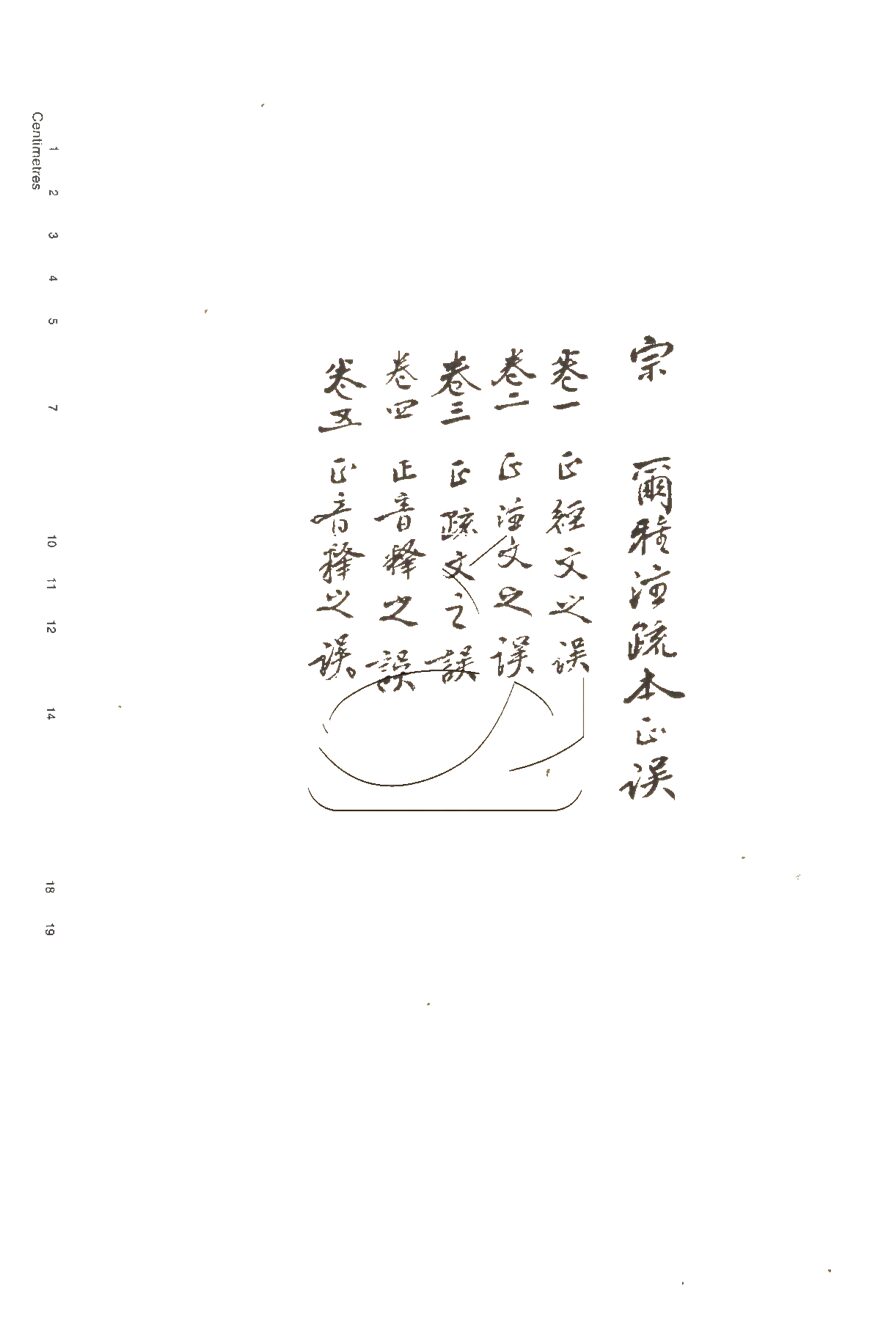 宗 爾雅注疏本正误
卷一 正經文之误
卷二 正注文之误
卷三 正疏文之誤
卷四 正音釋之誤
卷五 正音释之误。
Centimetres
1 2 3 4 5 7 10 11 12 14 18 19